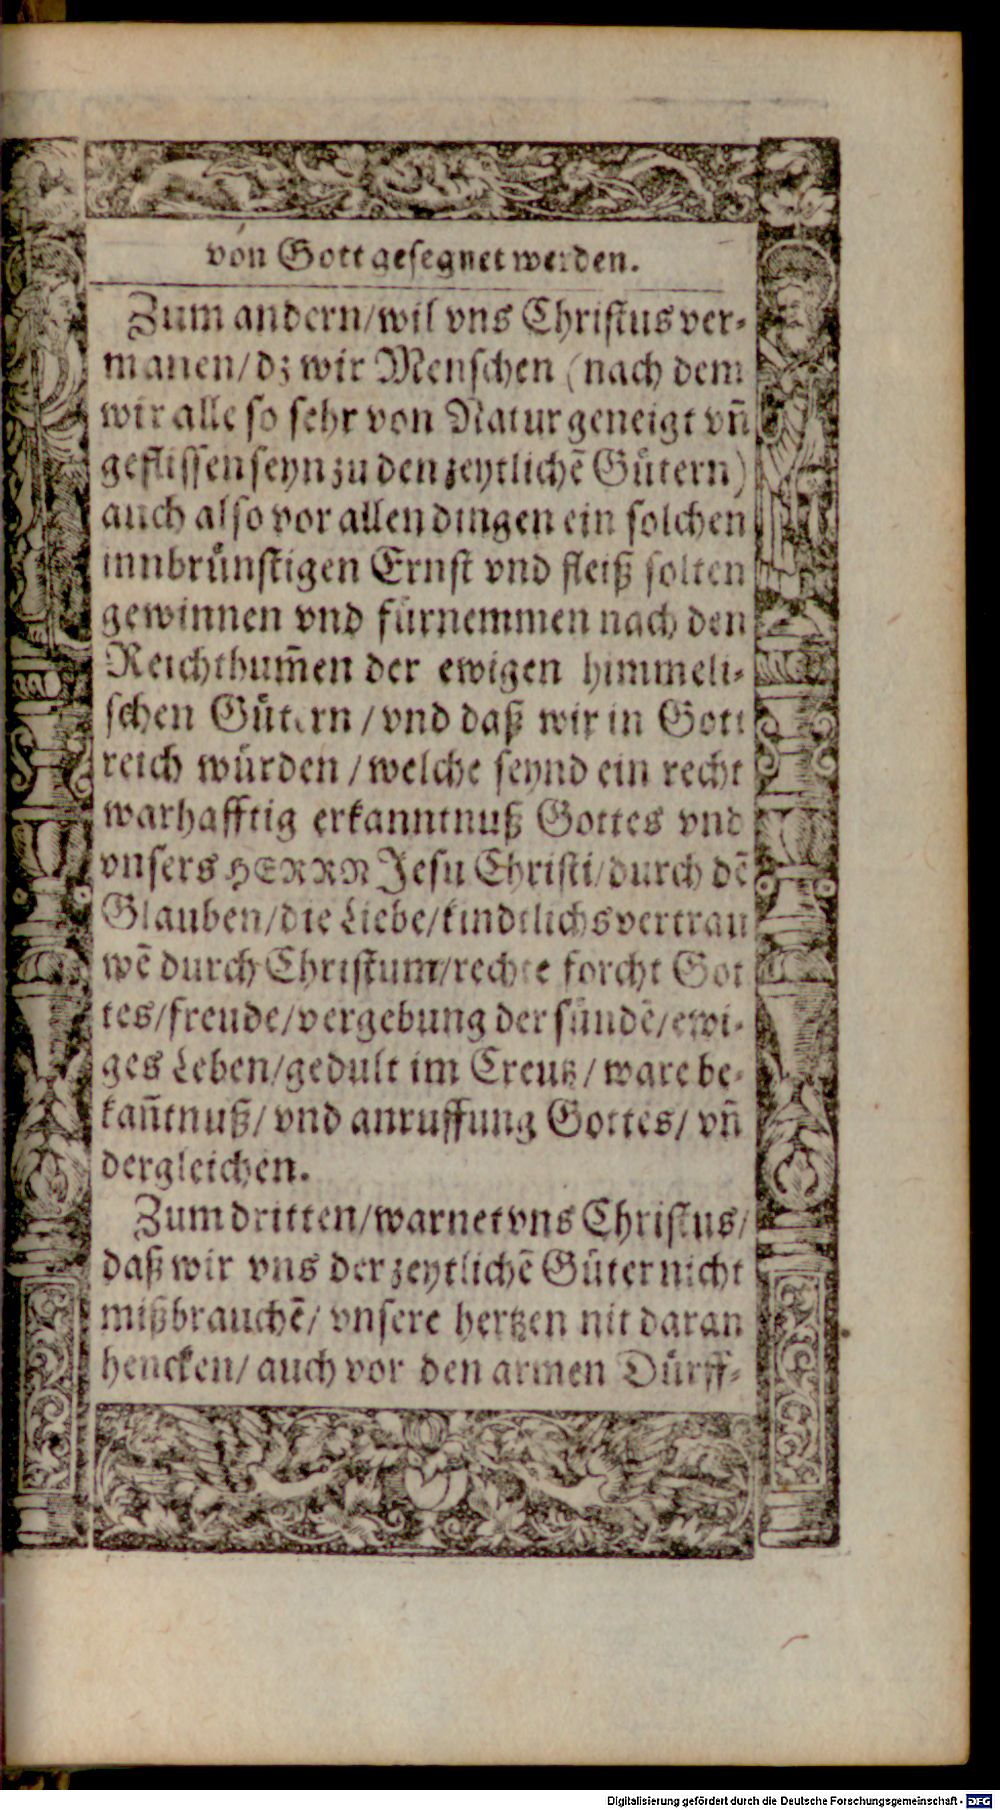 von Gott gesegnet werden.
Zum andern/wil vns Christus ver-
manen/dz wir Menschen (nach dem
wir alle so sehr von Natur geneigt vñ
geflissen seyn zu den zeytlichẽ Gütern)
auch also vor allen dingen ein solchen
innbrünstigen Ernst vnd fleiß solten
gewinnen vnd fürnemmen nach den
Reichthum̃en der ewigen himmeli-
schen Gütern/vnd daß wir in Gott
reich würden/welche seynd ein recht
warhafftig erkanntnuß Gottes vnd
vnsers HERRN Jesu Christi/durch dẽ
Glauben/die Liebe/kindtlichs vertrau
wẽ durch Christum/rechte forcht Got
tes/freude/vergebung der sündẽ/ewi-
ges Leben/gedult im Creutz/ware be-
kañtnuß/vnd anruffung Gottes/vñ
dergleichen.
Zum dritten/warnet vns Christus/
daß wir vns der zeytlichẽ Güter nicht
mißbrauchẽ/vnsere hertzen nit daran
hencken/auch vor den armen Dürff-
Digitalisierung gefördert durch die Deutsche Forschungsgemeinschaft - DFG